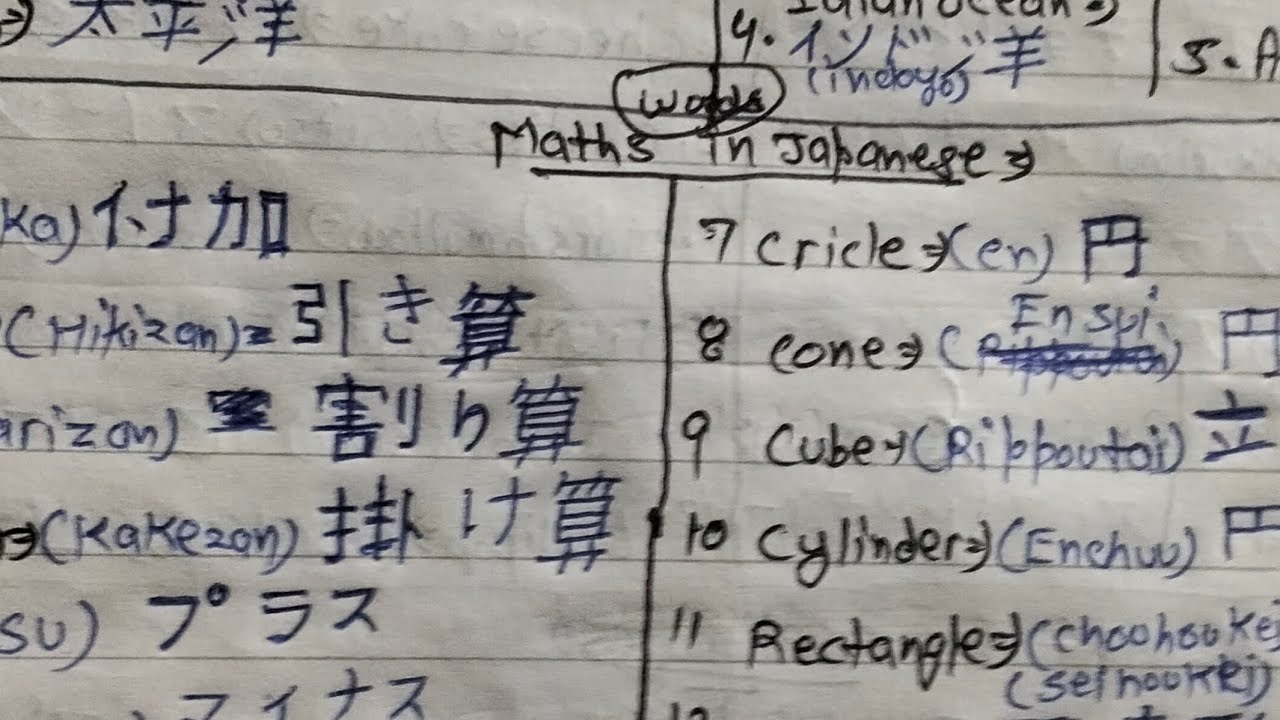 ⇒ 太平洋
4. インド洋
(indoyō)
5. A
Words
Maths in Japanese ⇒
ka) 付加
(Hikizan) = 引き算
arizan) 割り算
⇒ (Kakezan) 掛け算
su) プラス
マイナス
7 Cricle ⇒ (en) 円
8 Cone ⇒ (Enspi) 円
9 Cube ⇒ (Rippoutai) 立
10 Cylinder ⇒ (Enchuu) 円
11 Rectangle ⇒ (choohooke
(seihookei)
12